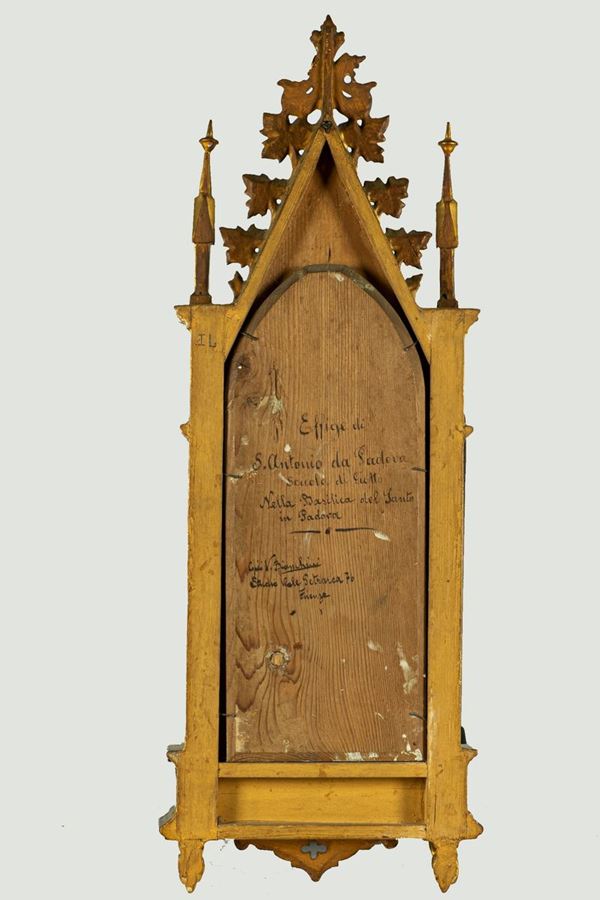 IL
Effige di
S. Antonio da Padova
Scuola di Giotto
Nella Basilica del Santo
in Padova
V. Bianchini
Studio Viale Petrarca 76
Firenze